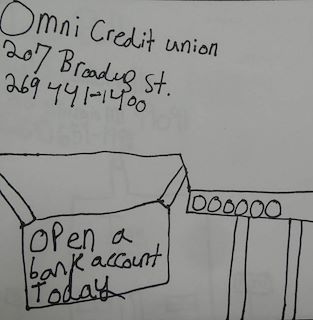 Omni Credit union
207 Broadus St.
269 441-1400
OPen a
bank account
Today